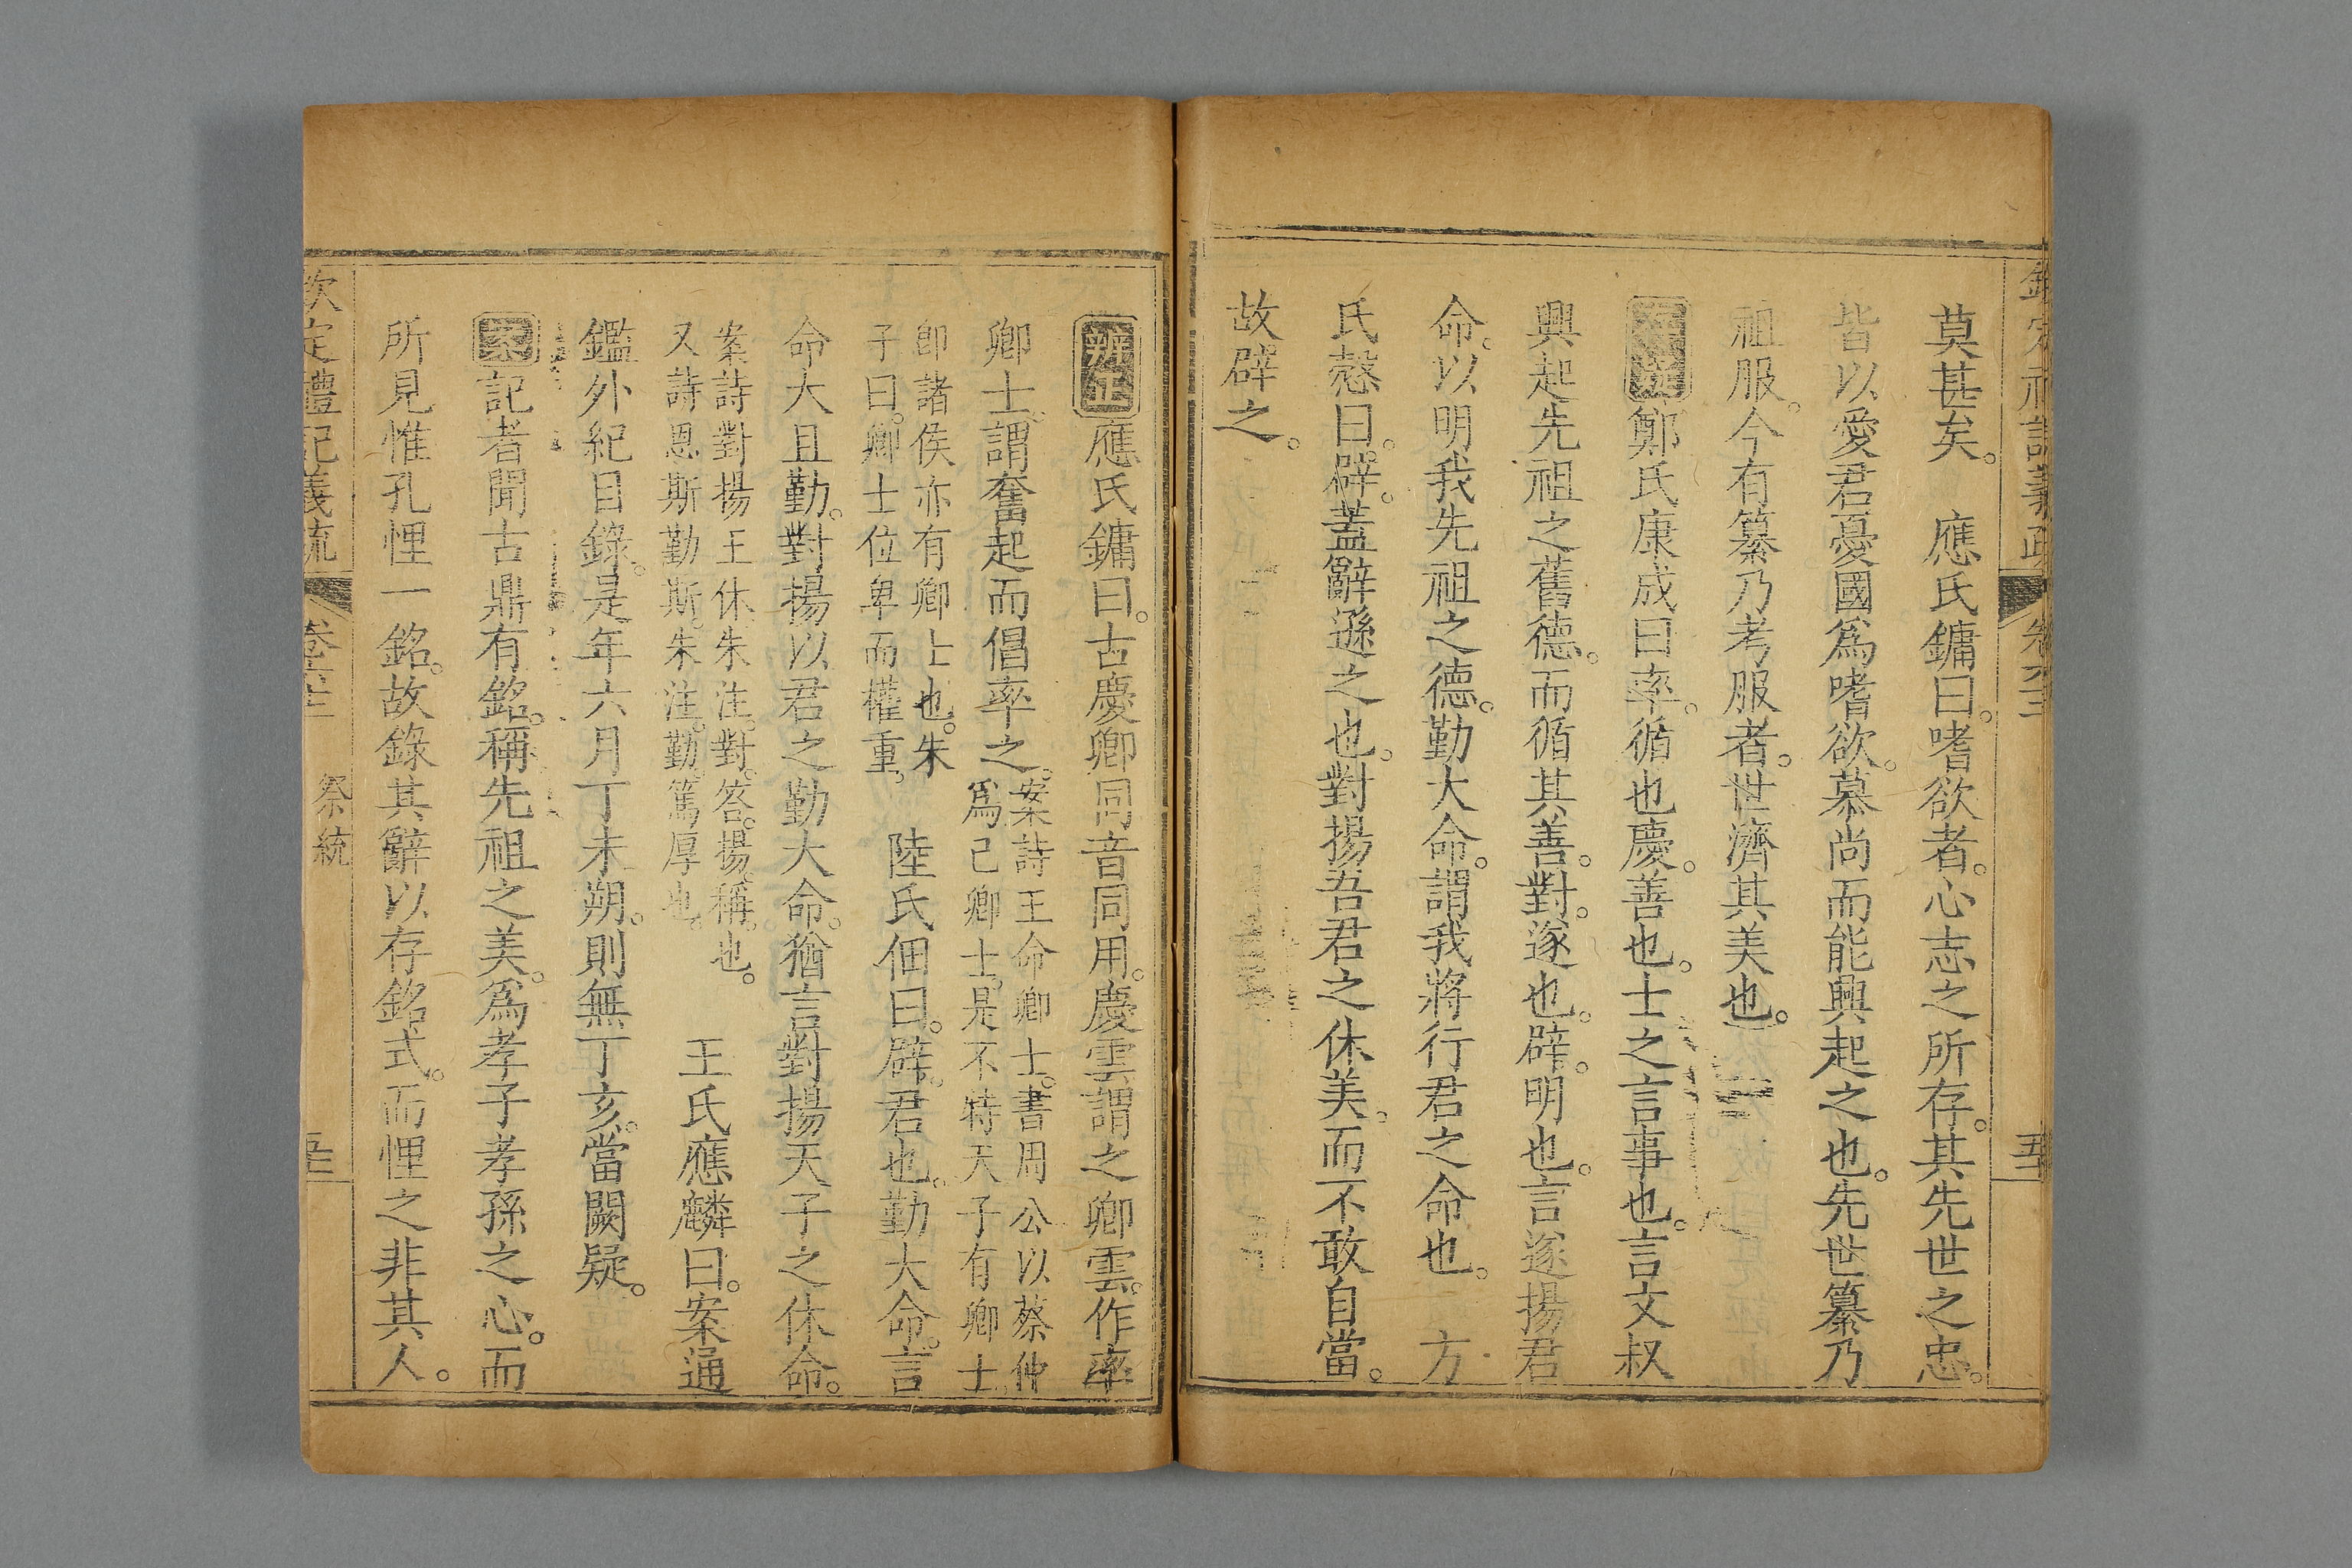 莫甚矣。　應氏鏞曰。嗜欲者。心志之所存。其先世之忠。
皆以愛君憂國爲嗜欲。慕尚而能興起之也。先世纂乃
祖服。今有纂乃考服者。世濟其美也。
鄭氏康成曰。率。循也。慶。善也。士之言事也。言文叔
興起先祖之舊德。而循其善。對。遂也。辟。明也。言遂揚君
命。以明我先祖之德。勤大命。謂我將行君之命也。　方
氏慤曰。辟。蓋辭遜之也。對揚吾君之休美。而不敢自當。
故辟之。
辨正應氏鏞曰。古慶卿同音同用。慶雲謂之卿雲。作率
卿士。謂奮起而倡率之。案詩王命卿士。書周公以蔡仲
爲己卿士。是不特天子有卿士。
卽諸侯亦有卿士也。朱
子曰。卿士位卑而權重。　陸氏佃曰。辟。君也。勤大命。言
命大且勤。對揚以君之勤大命。猶言對揚天子之休命。
案詩對揚王休。朱注。對。答。揚。稱也。
又詩恩斯勤斯。朱注。勤。篤厚也。　王氏應麟曰。案通
鑑外紀目錄。是年六月丁未朔。則無丁亥。當闕疑。
案記者聞古鼎有銘。稱先祖之美。爲孝子孝孫之心。而
所見惟孔悝一銘。故錄其辭以存銘式。而悝之非其人。
欽定禮記義疏　卷六十二　祭統